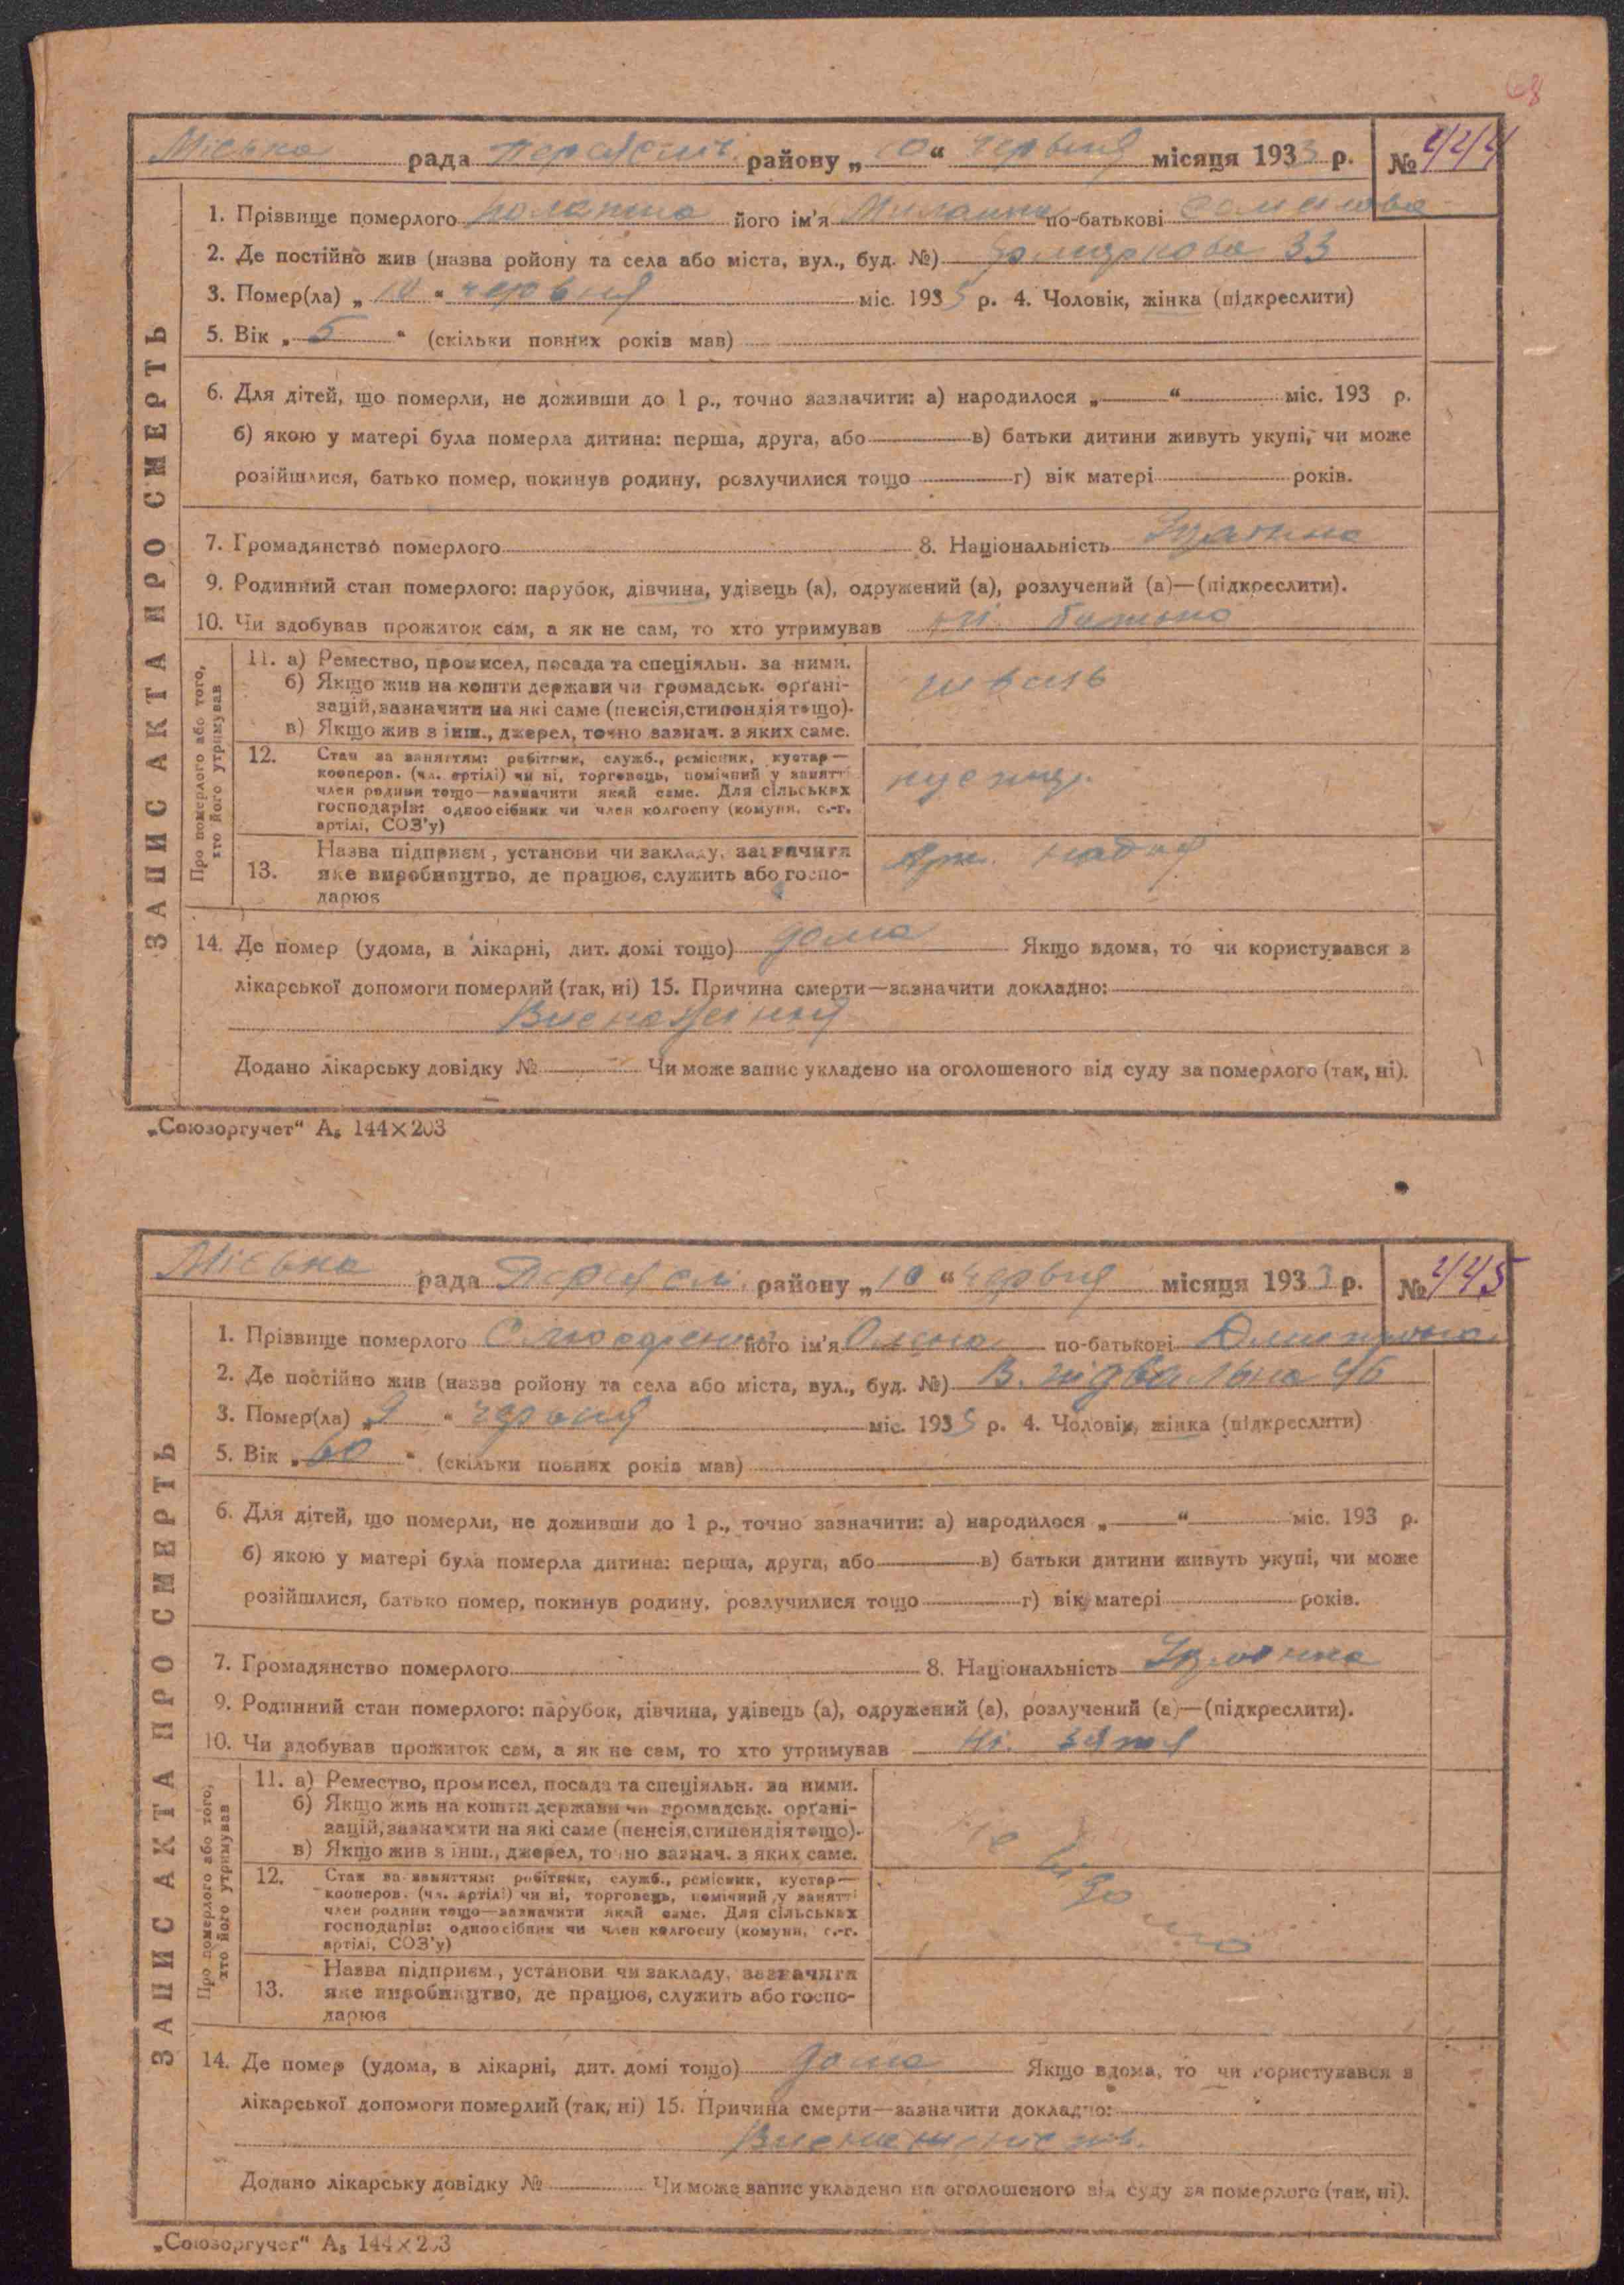 68
Міська рада Переясл. району „10“ червня місяця 1933 р. № 444
ЗАПИС АКТА ПРО СМЕРТЬ
1. Прізвище померлого його ім'я по-батькові
2. Де постійно жив (назва ройону та села або міста, вул., буд. №) 33
3. Помер(ла) „10“ червня міс. 1933 р. 4. Чоловік, жінка (підкреслити)
5. Вік „5“ (скільки повних років мав)
6. Для дітей, що померли, не доживши до 1 р., точно зазначити: а) народилося „—“ міс. 193 р.
б) якою у матері була померла дитина: перша, друга, або — в) батьки дитини живуть укупі, чи може
розійшлися, батько помер, покинув родину, розлучилися тощо — г) вік матері — років.
7. Громадянство померлого 8. Національність
9. Родинний стан померлого: парубок, дівчина, удівець (а), одружений (а), розлучений (а)—(підкреслити).
10. Чи здобував прожиток сам, а як не сам, то хто утримував ні. батько
Про померлого або того, хто його утримував
11. а) Ремество, промисел, посада та спеціяльн. за ними.
б) Якщо жив на кошти держави чи громадськ. органі-
зацій, зазначити на які саме (пенсія, стипендія тощо).
в) Якщо жив з інш., джерел, точно зазнач. з яких саме.
12. Стан за заняттям: робітник, служб., ремісник, кустар—
кооперов. (чл. артілі) чи ні, торговець, помічний у занятті
член родини тощо—зазначити який саме. Для сільських
господарів: одноосібник чи член колгоспу (комуни, с.-г.
артілі, СОЗ'у)
13. Назва підприєм., установи чи закладу, зазначити
яке виробництво, де працює, служить або госпо-
дарює
14. Де помер (удома, в лікарні, дит. домі тощо) дома Якщо вдома, то чи користувався з
лікарської допомоги померлий (так, ні) 15. Причина смерти—зазначити докладно:
Виснаження
Додано лікарську довідку № — Чи може запис укладено на оголошеного від суду за померлого (так, ні).
„Союзоргучет“ А₅ 144×203
Міська рада Переясл. району „10“ червня місяця 1933 р. № 445
ЗАПИС АКТА ПРО СМЕРТЬ
1. Прізвище померлого його ім'я Олена по-батькові
2. Де постійно жив (назва ройону та села або міста, вул., буд. №) В. підвальна 46
3. Помер(ла) „9“ червня міс. 1933 р. 4. Чоловік, жінка (підкреслити)
5. Вік „60“ (скільки повних років мав)
6. Для дітей, що померли, не доживши до 1 р., точно зазначити: а) народилося „—“ міс. 193 р.
б) якою у матері була померла дитина: перша, друга, або — в) батьки дитини живуть укупі, чи може
розійшлися, батько помер, покинув родину, розлучилися тощо — г) вік матері — років.
7. Громадянство померлого 8. Національність
9. Родинний стан померлого: парубок, дівчина, удівець (а), одружений (а), розлучений (а)—(підкреслити).
10. Чи здобував прожиток сам, а як не сам, то хто утримував Ні. зятя
Про померлого або того, хто його утримував
11. а) Ремество, промисел, посада та спеціяльн. за ними.
б) Якщо жив на кошти держави чи громадськ. органі-
зацій, зазначити на які саме (пенсія, стипендія тощо).
в) Якщо жив з інш., джерел, точно зазнач. з яких саме.
Не відомо
12. Стан за заняттям: робітник, служб., ремісник, кустар—
кооперов. (чл. артілі) чи ні, торговець, помічний у занятті
член родини тощо—зазначити який саме. Для сільських
господарів: одноосібник чи член колгоспу (комуни, с.-г.
артілі, СОЗ'у)
13. Назва підприєм., установи чи закладу, зазначити
яке виробництво, де працює, служить або госпо-
дарює
14. Де помер (удома, в лікарні, дит. домі тощо) дома Якщо вдома, то чи користувався з
лікарської допомоги померлий (так, ні) 15. Причина смерти—зазначити докладно:
Додано лікарську довідку № — Чи може запис укладено на оголошеного від суду за померлого (так, ні).
„Союзоргучет“ А₅ 144×203